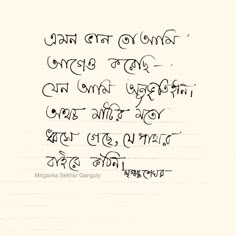 এমন ভান তো আমি
আগেও করেছি -
যেন আমি অনুভূতিহীন।
অথচ মাটির মতো
ধ্বসে গেছে, যে পাথর
বাইরে কঠিন।
মৃগাঙ্ক শেখর
Mriganka Sekhar Ganguly